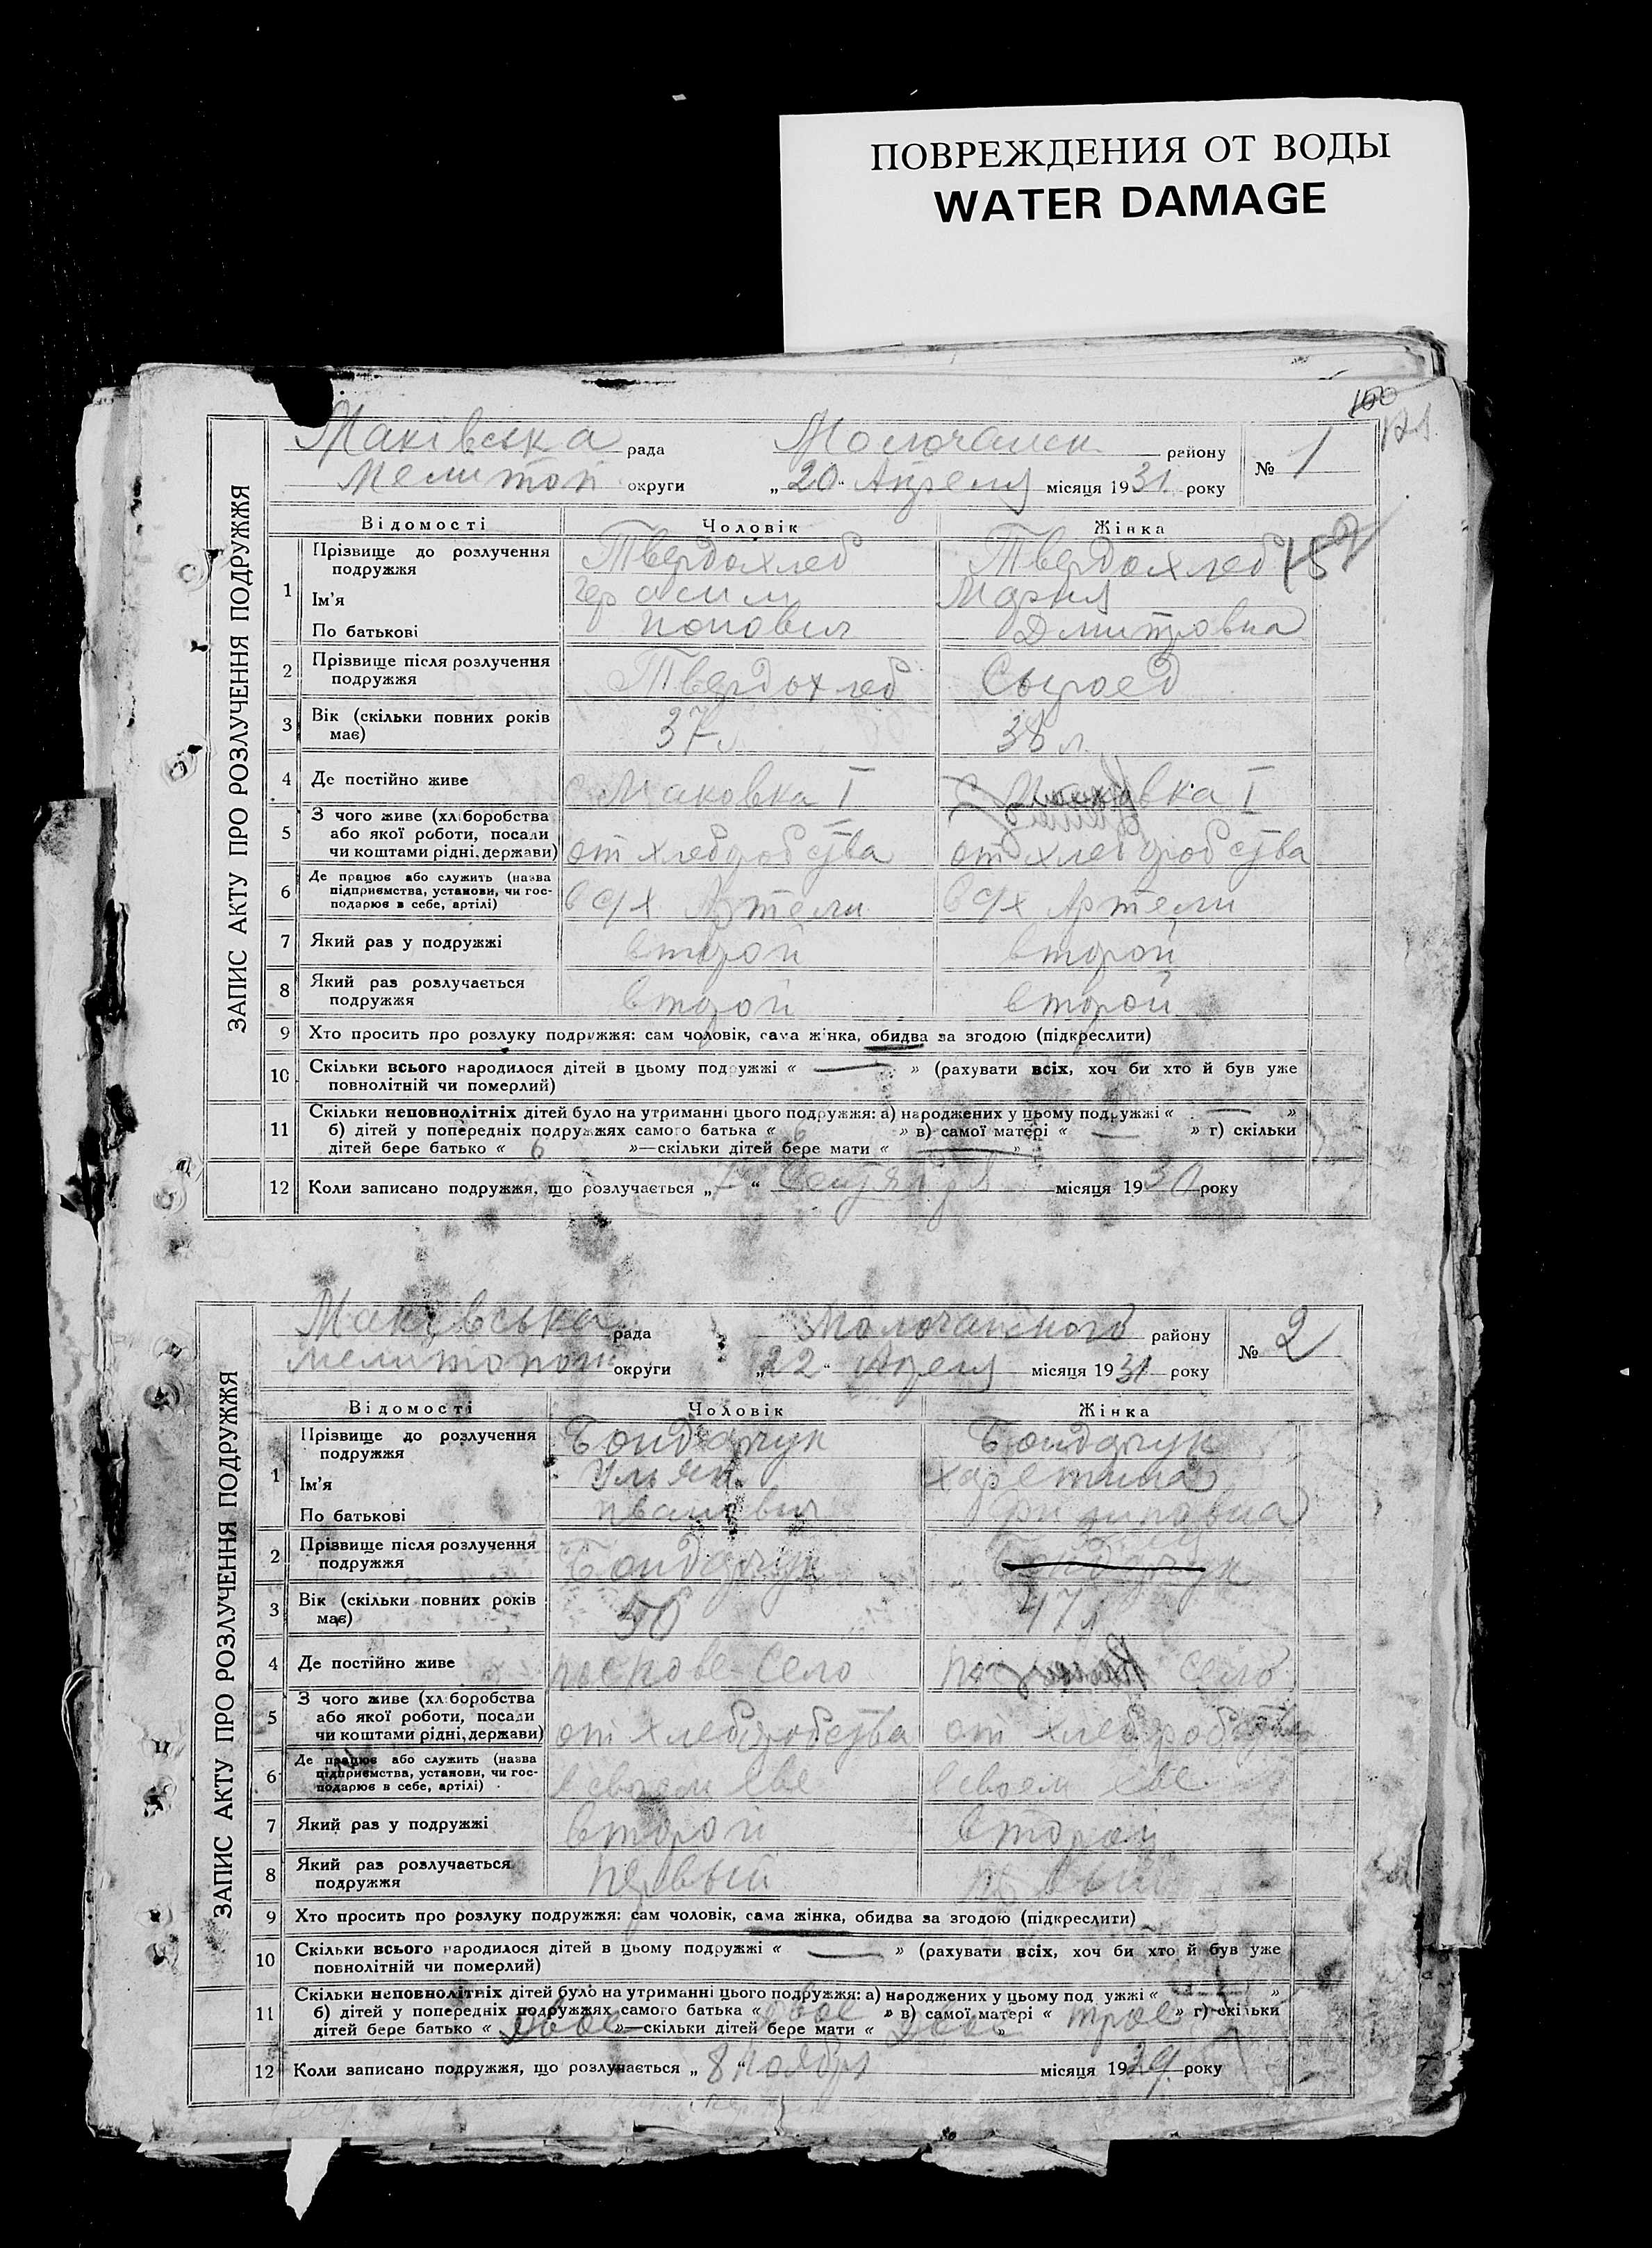 ПОВРЕЖДЕНИЯ ОТ ВОДЫ
WATER DAMAGE
160
ЗАПИС АКТУ ПРО РОЗЛУЧЕННЯ ПОДРУЖЖЯ
Маківська рада Молочанск району № 1
Мелитоп округи „20“ Апреля місяця 1931 року
Відомості Чоловік Жінка
1 Прізвище до розлучення подружжя Твердохлеб Твердохлеб
157
Ім'я Герасим Мария
По батькові Дмитровна
2 Прізвище після розлучення подружжя Твердохлеб Сыроед
3 Вік (скільки повних років має) 37 л 38 л
4 Де постійно живе с Маковка I
5 З чого живе (хліборобства або якої роботи, посади чи коштами рідні, держави) от хлебробства от хлебробства
6 Де працює або служить (назва підприємства, установи, чи господарює в себе, артілі) в с/х Артели в с/х Артели
7 Який раз у подружжі второй второй
8 Який раз розлучається подружжя второй второй
9 Хто просить про розлуку подружжя: сам чоловік, сама жінка, обидва за згодою (підкреслити)
10 Скільки всього народилося дітей в цьому подружжі « — » (рахувати всіх, хоч би хто й був уже
повнолітній чи померлий)
11 Скільки неповнолітніх дітей було на утриманні цього подружжя: а) народжених у цьому подружжі « — »
б) дітей у попередніх подружжях самого батька « 6 » в) самої матері « — » г) скільки
дітей бере батько « 6 »—скільки дітей бере мати « — »
12 Коли записано подружжя, що розлучається „7“ Сентября місяця 1930 року
ЗАПИС АКТУ ПРО РОЗЛУЧЕННЯ ПОДРУЖЖЯ
Маківська рада Молочанского району № 2
округи „22“ Апреля місяця 1931 року
Відомості Чоловік Жінка
1 Прізвище до розлучення подружжя Бондарчук Бондарчук
Ім'я Ульян Харетина
По батькові Иванович
2 Прізвище після розлучення подружжя Бондарчук
3 Вік (скільки повних років має) 50 47 л
4 Де постійно живе село село
5 З чого живе (хліборобства або якої роботи, посади чи коштами рідні, держави) от хлебробства от хлебробства
6 Де працює або служить (назва підприємства, установи, чи господарює в себе, артілі) в своем в своем
7 Який раз у подружжі второй второй
8 Який раз розлучається подружжя первый
9 Хто просить про розлуку подружжя: сам чоловік, сама жінка, обидва за згодою (підкреслити)
10 Скільки всього народилося дітей в цьому подружжі « — » (рахувати всіх, хоч би хто й був уже
повнолітній чи померлий)
11 Скільки неповнолітніх дітей було на утриманні цього подружжя: а) народжених у цьому подружжі « — »
б) дітей у попередніх подружжях самого батька « двое » в) самої матері « трое » г) скільки
дітей бере батько « двое »—скільки дітей бере мати « »
12 Коли записано подружжя, що розлучається „8“ Ноября місяця 1929 року